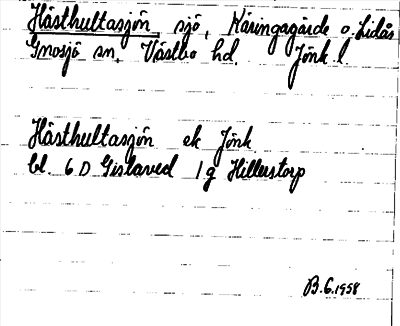 Hästhultasjön, sjö, Käringagärde o. Lidås
Gnosjö sn. Västbo hd. Jönk. l.
Hästhultasjön ek Jönk
bl. 6 D Gislaved 1 g Hillerstorp
B.G. 1958